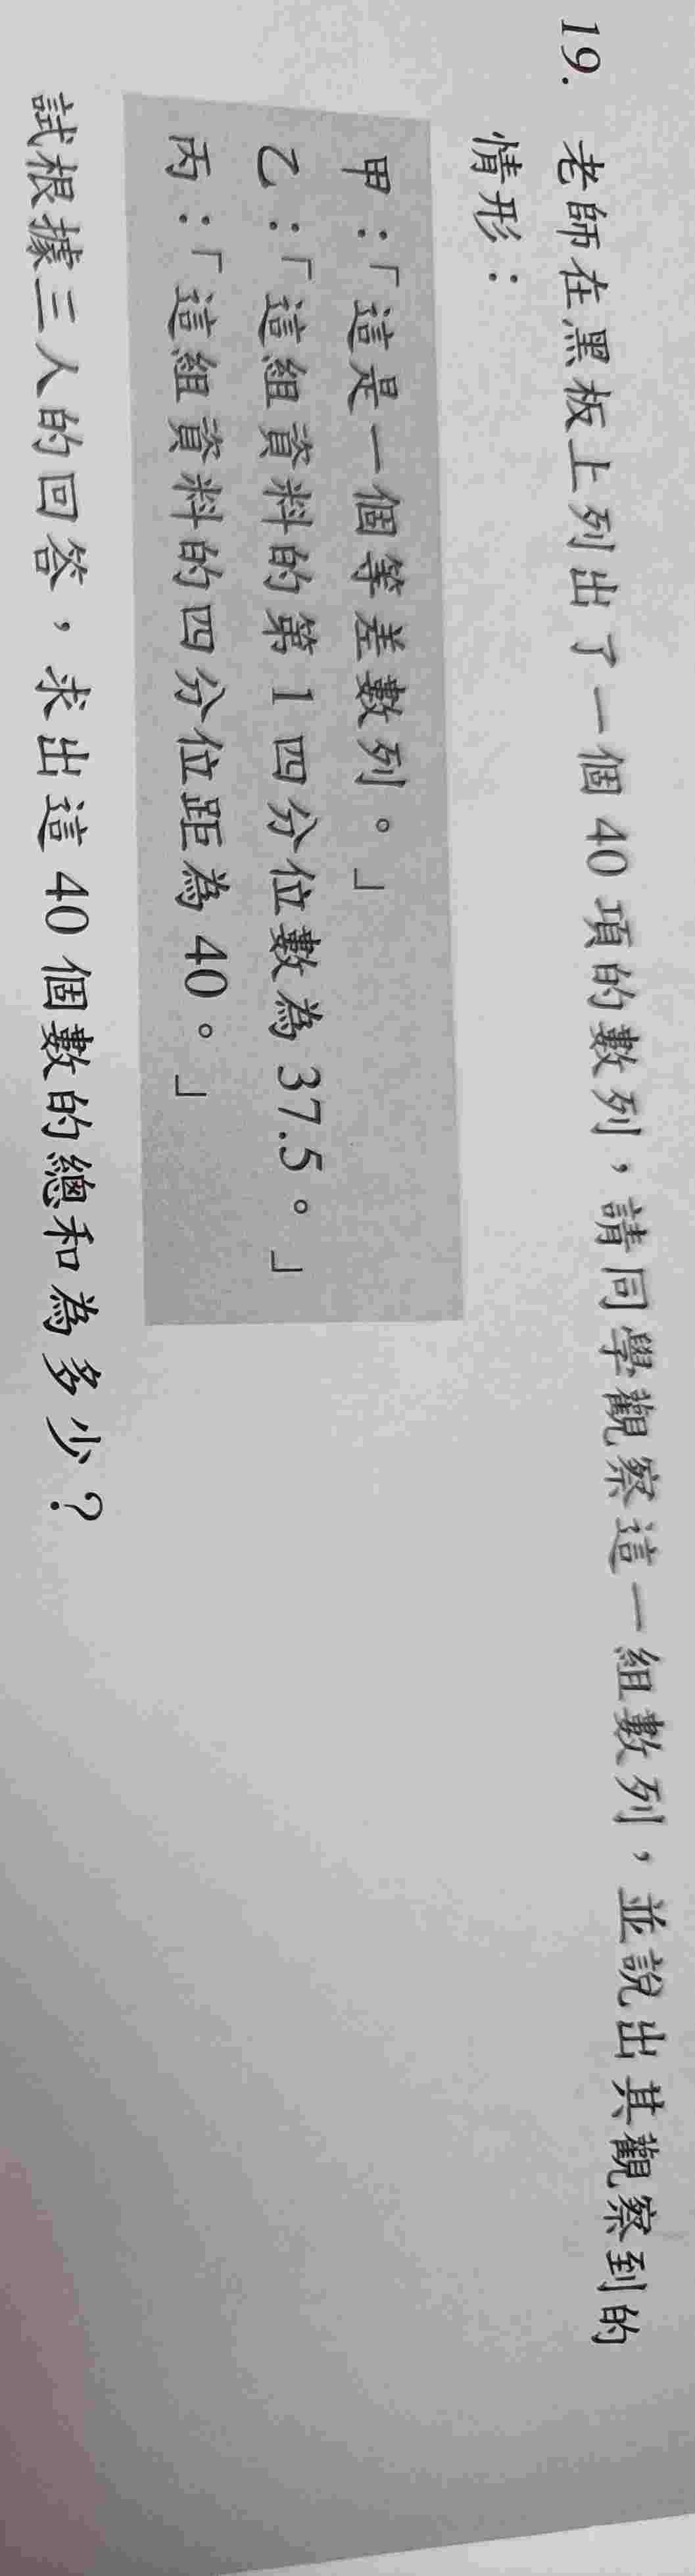 19. 老師在黑板上列出了一個 40 項的數列，請同學觀察這一組數列，並說出其觀察到的
情形：
甲：「這是一個等差數列。」
乙：「這組資料的第 1 四分位數為 37.5。」
丙：「這組資料的四分位距為 40。」
試根據三人的回答，求出這 40 個數的總和為多少？